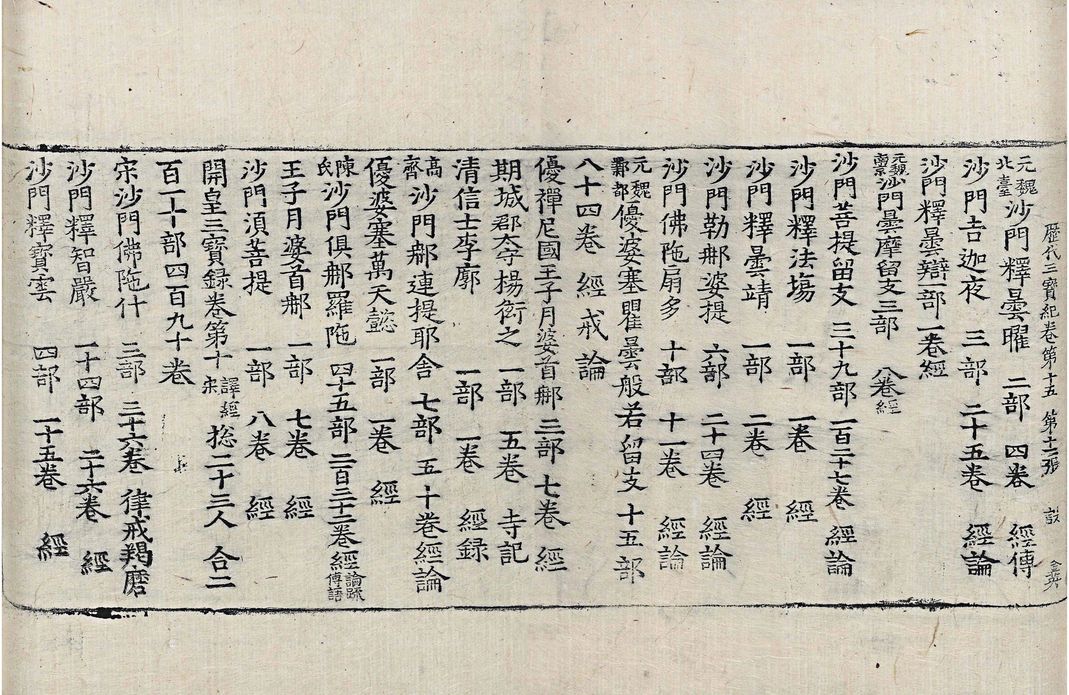 歷代三寶紀卷第十五 第十二張 設 金英
元魏北臺沙門釋曇曜 二部 四卷 經傳
沙門吉迦夜 三部 二十五卷 經論
沙門釋曇辯一部一卷經
元魏沙門曇摩留支三部 八卷經
沙門菩提留支 三十九部 一百二十七卷 經論
沙門釋法場 一部 一卷 經
沙門釋曇靖 一部 二卷 經
沙門勒那婆提 六部 二十四卷 經論
沙門佛陁扇多 十部 十一卷 經論
元魏鄴都優婆塞瞿曇般若留支 十五部
八十四卷 經戒論
優禪尼國王子月婆首那 三部 七卷 經
期城郡太守楊衒之 一部 五卷 寺記
清信士李廓 一部 一卷 經録
高齊沙門那連提耶舍 七部 五十卷經論
優婆塞萬天懿 一部 一卷 經
陳氏沙門俱那羅陁 四十五部 二百三十二卷經論疏傳語
王子月婆首那 一部 七卷 經
沙門須菩提 一部 八卷 經
開皇三寶録卷第十譯經宋 捴二十三人 合二
百一十部四百九十卷
宋沙門佛陁什 三部 三十六卷 律戒羯磨
沙門釋智嚴 一十四部 三十六卷 經
沙門釋寶雲 四部 一十五卷 經